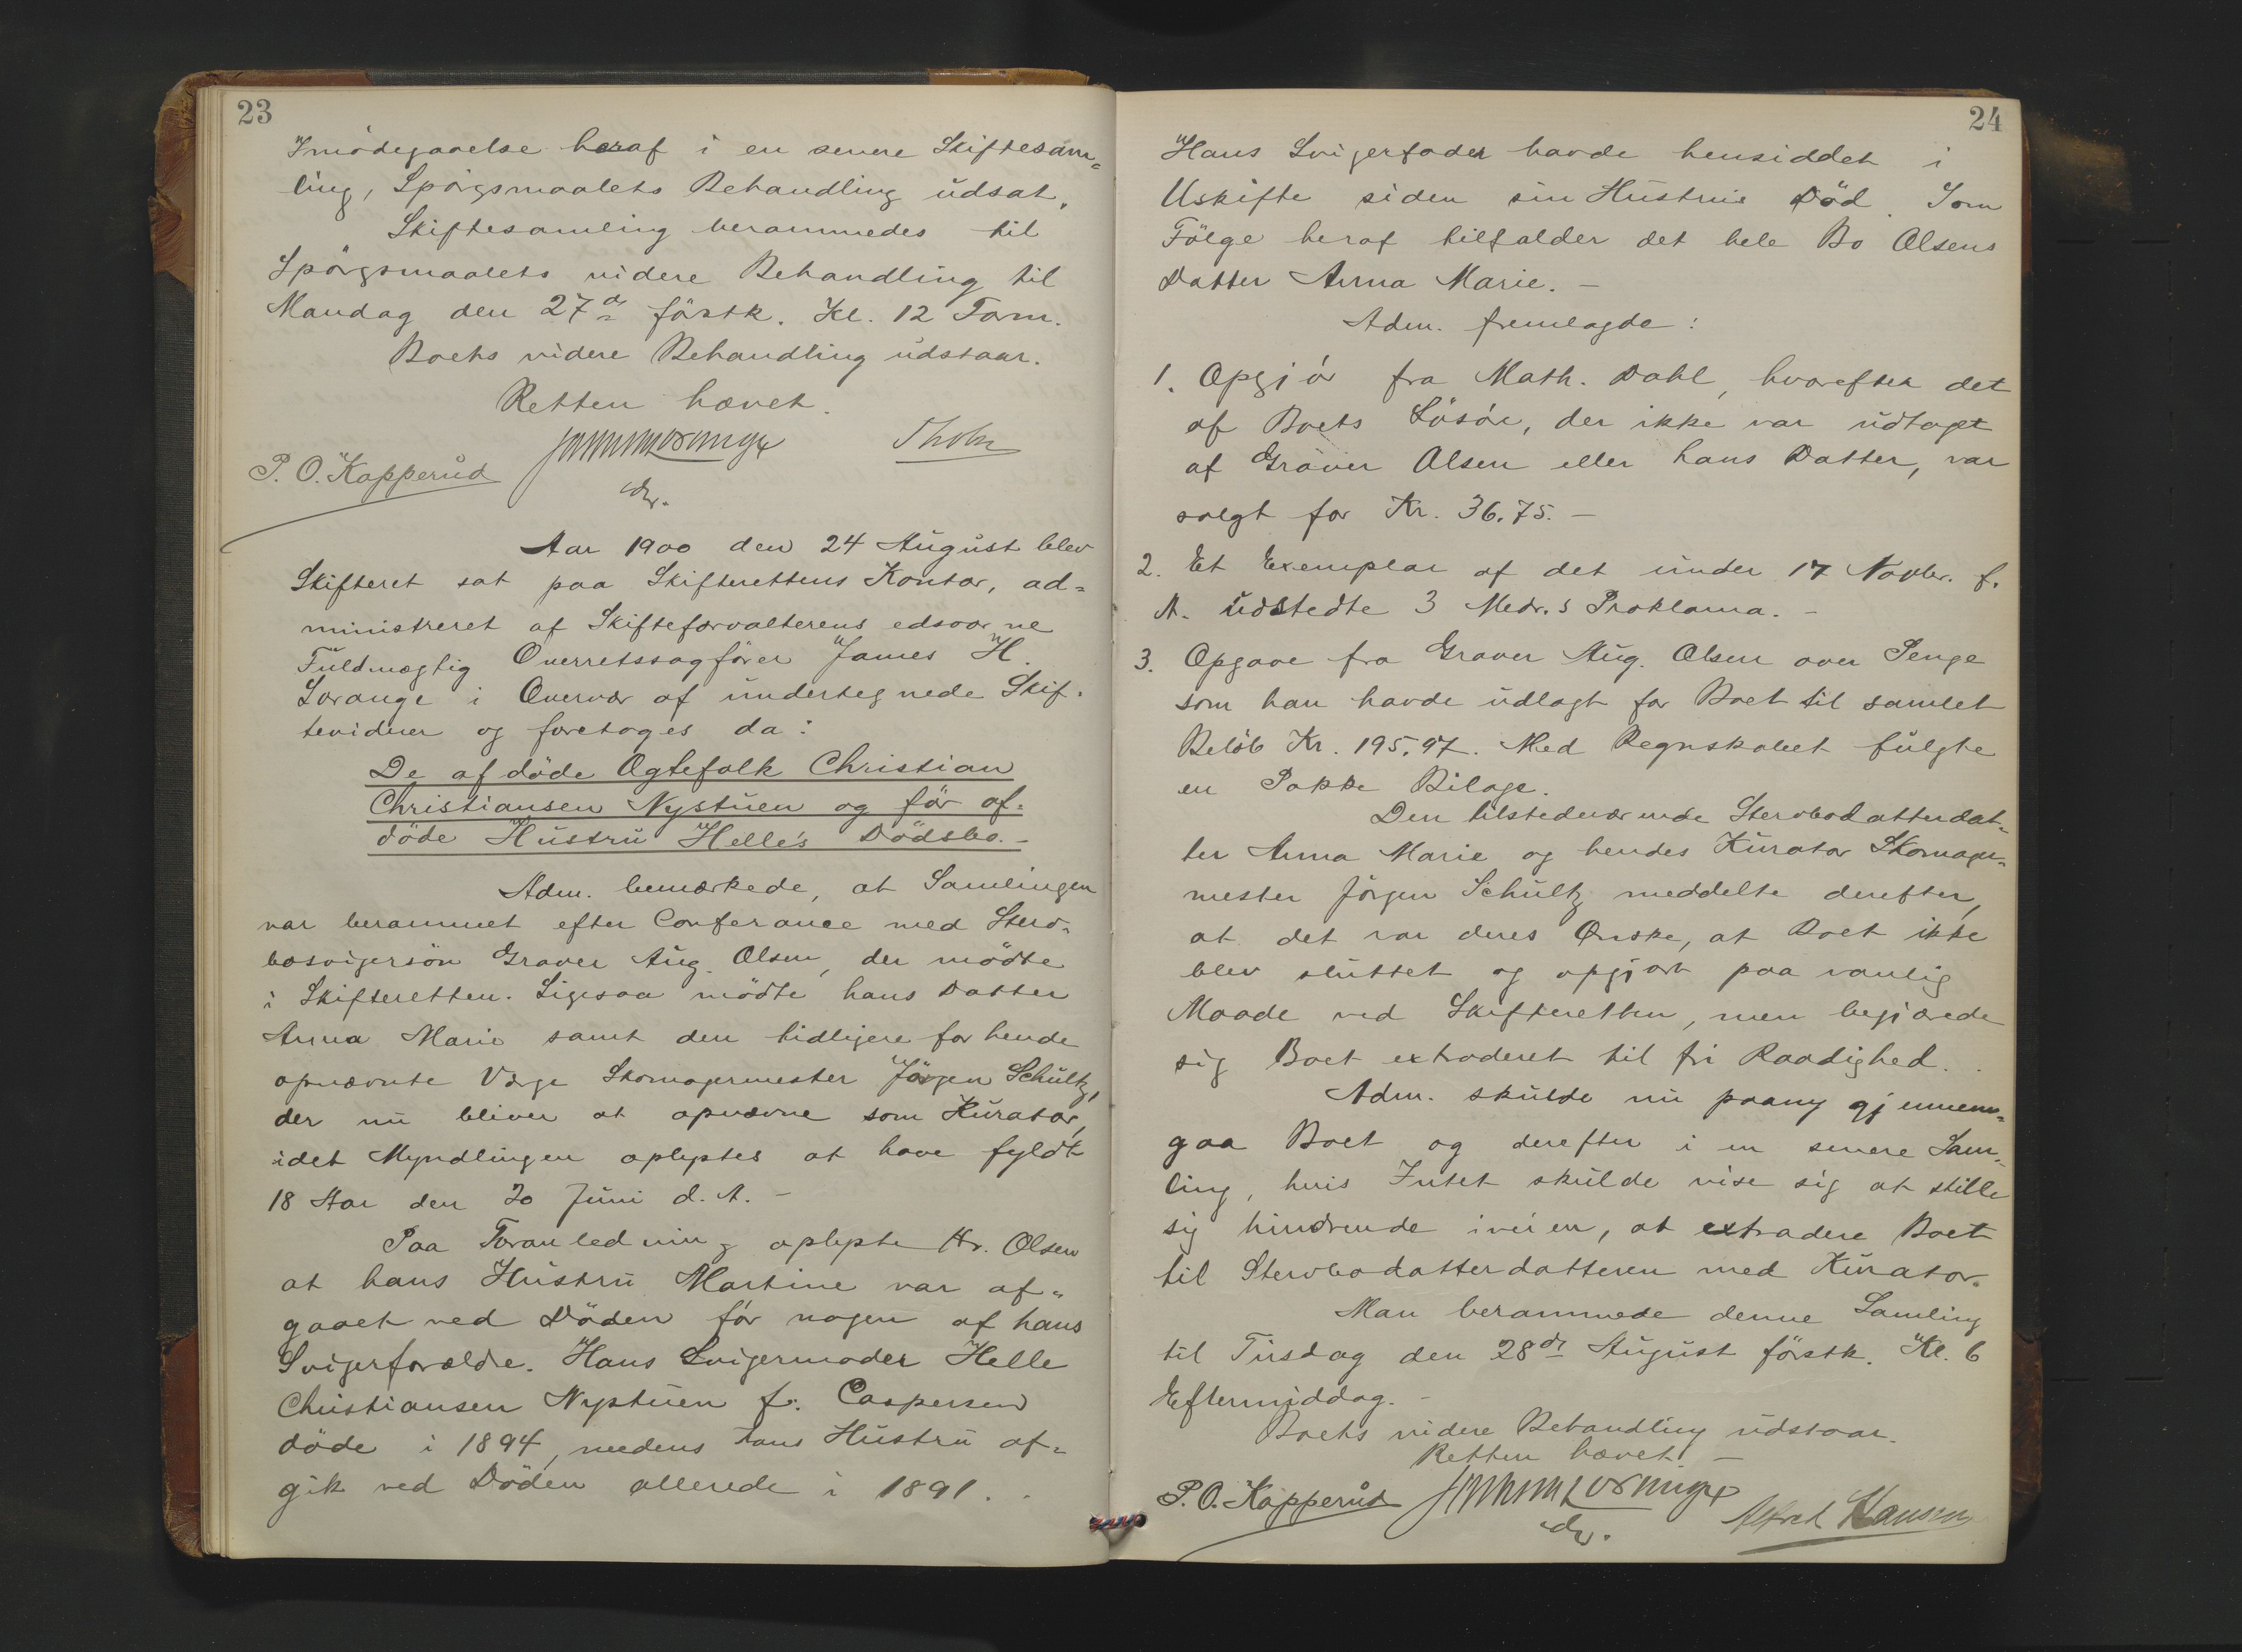 23
Imödegaaelse heraf i en senere Skiftesam=
ling, Spörgsmaalets Behandling udsat.
Skiftesamling berammedes til
Spörgsmaalets videre Behandling til
Mandag den 27de förstk. Kl. 12 Form.
Boets videre Behandling udstaar.
Retten hævet.
P. O. Kapperud
Aar 1900 den 24 August blev
Skifteret sat paa Skifterettens Kontor, ad=
ministreret af Skifteforvalterens edsvorne
Fuldmægtig Overretssagförer James H.
Lorange i Overvær af undertegnede Skif=
tevidner og foretoges da:
De afdöde Ægtefolk Christian
Christiansen Nystuen og för af=
döde Hustru Helle's Dödsbo. –
Adm. bemærkede, at Samlingen
var berammet efter Conferance med Sterv=
bosvigersön Graver Aug. Olsen, der mödte
i Skifteretten. Ligesaa mödte hans Datter
Anna Marie samt den tidligere for hende
opnævnte Værge Skomagermester Jörgen Schultz,
der nu bliver at opnævne som Kurator,
idet Myndlingen oplystes at have fyldt
18 Aar den 20 Juni d. A. –
Paa Foranledning oplyste Hr. Olsen
at hans Hustru Martine var af=
gaaet ved Döden för nogen af hans
Svigerforældre. Hans Svigermoder Helle
Christiansen Nystuen f. Caspersen
döde i 1894, medens hans Hustru af=
gik ved Döden allerede i 1891.
24
Hans Svigerfader havde hensiddet i
Uskifte siden sin Hustrus Död. Som
Fölge heraf tilfalder det hele Bo Olsens
Datter Anna Marie. –
Adm. fremlagde:
1. Opgjör fra Math. Dahl, hvorefter det
af Boets Lösöre, der ikke var udtaget
af Graver Olsen eller hans Datter, var
solgt for Kr. 36.75. –
2. Et Exemplar af det under 17 Novbr. f.
A. udstedte 3 Mdr.s Proklama. –
3. Opgave fra Graver Aug. Olsen over Penge
som han havde udlagt for Boet til samlet
Belöb Kr. 195.97. Med Regnskabet fulgte
en Pakke Bilage.
Den tilstedeværende Stervbodatterdat=
ter Anna Marie og hendes Kurator Skomager=
mester Jörgen Schultz meddelte derefter,
at det var deres Ønske, at Boet ikke
blev sluttet og opgjort paa vanlig
Maade ved Skifteretten, men begjærede
sig Boet extraderet til fri Raadighed.
Adm. skulde nu paany gjennem=
gaa Boet og derefter i en senere Sam=
ling, hvis Intet skulde vise sig at stille
sig hindrende iveien, at extradere Boet
til Stervbodatterdatteren med Kurator.
Man berammede denne Samling
til Tirsdag den 28de August förstk. Kl. 6
Eftermiddag. –
Boets videre Behandling udstaar.
Retten hævet. –
P. O. Kapperud James H. Lorange
edsv.
Alfred Hansen